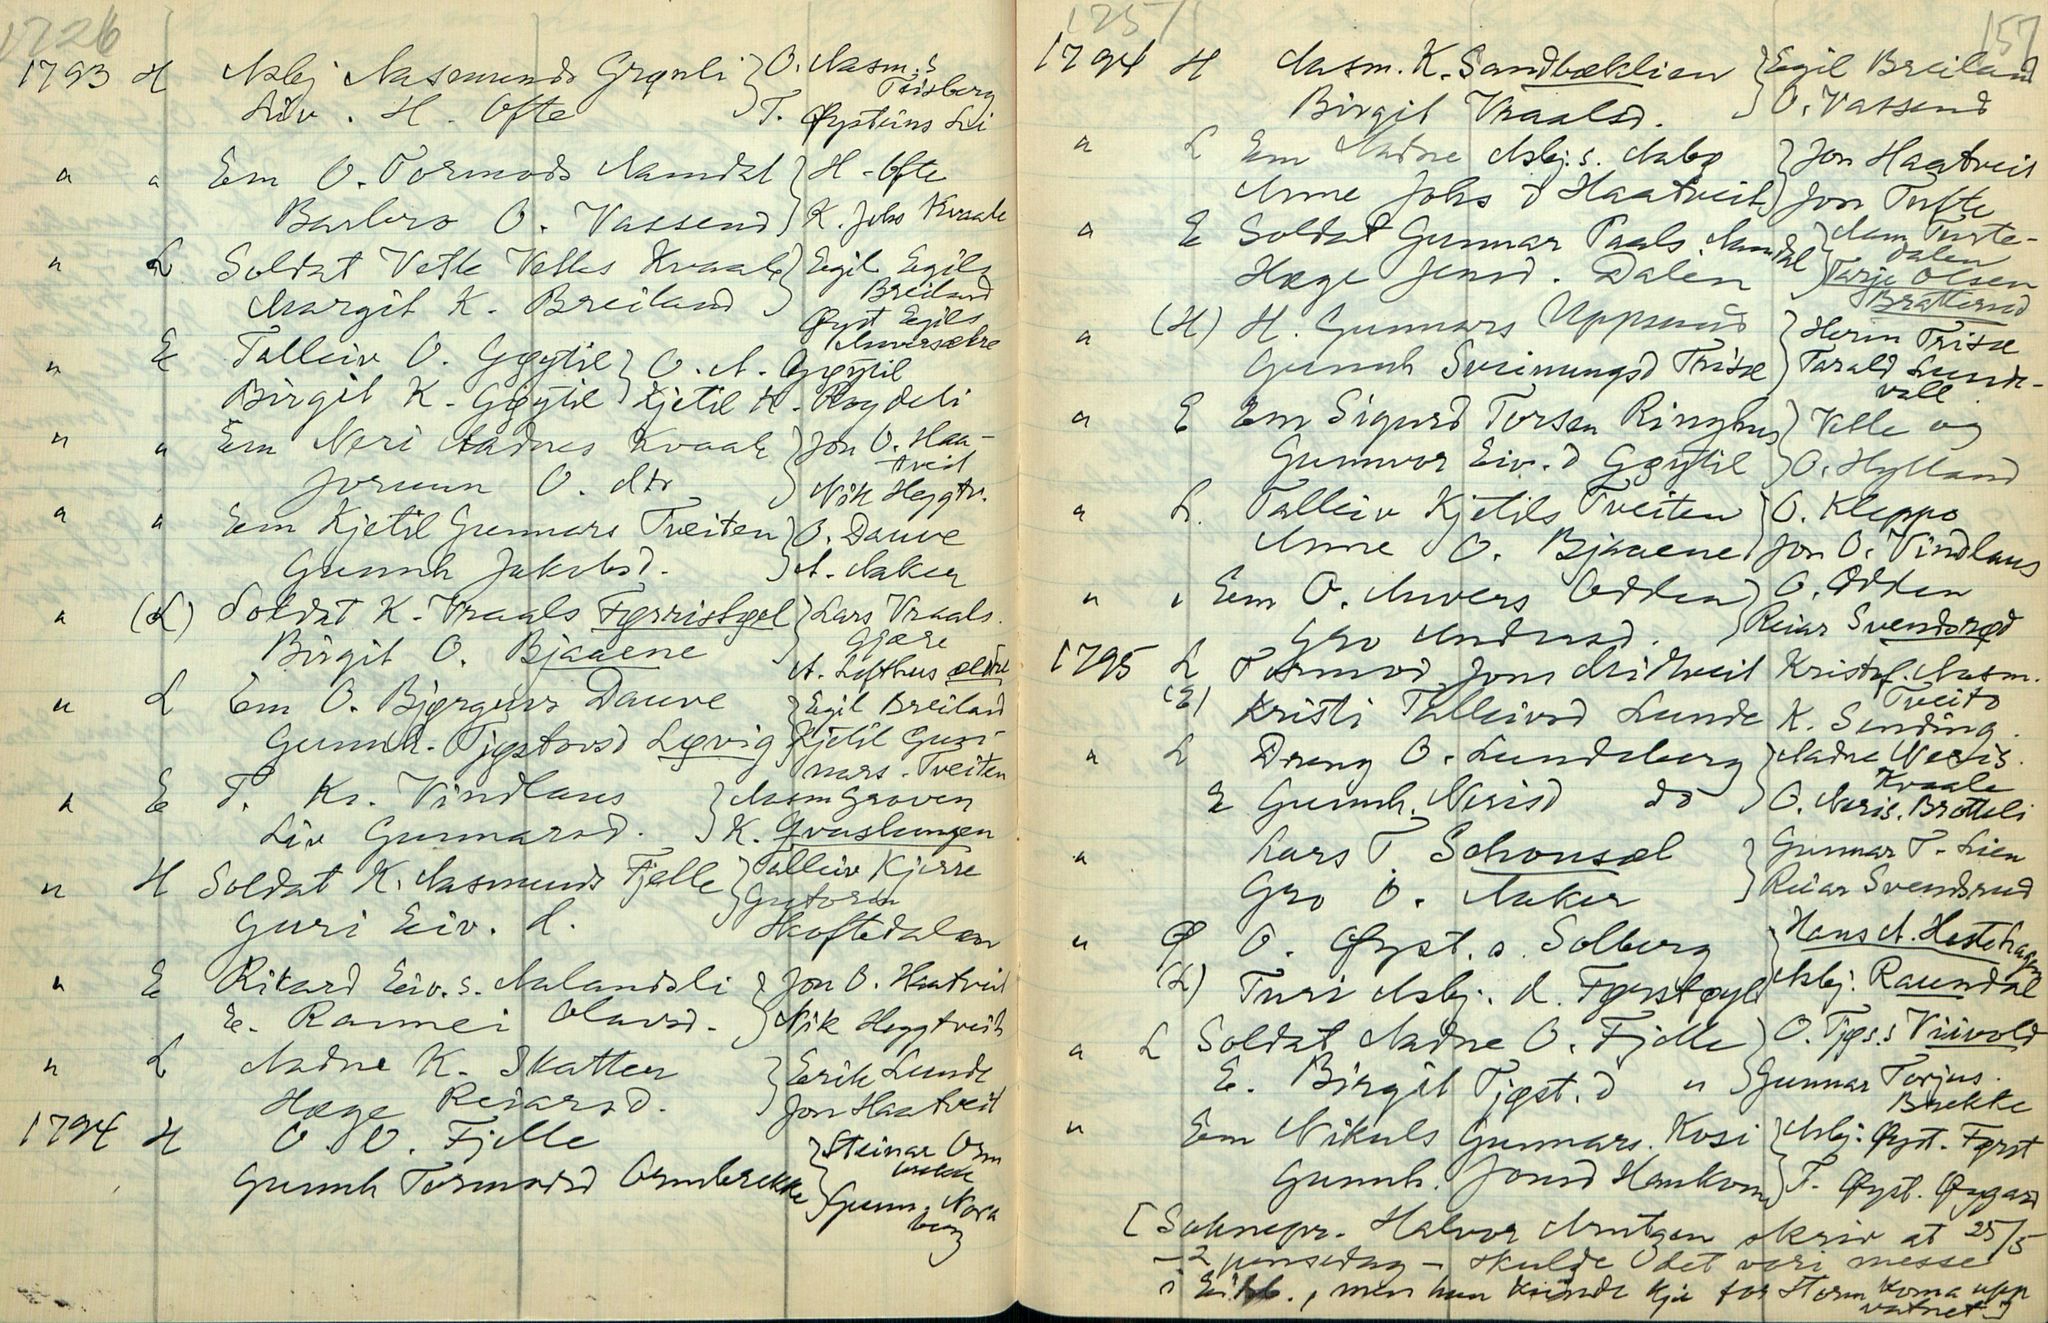 1726
1793 H Asbj Aasmunds Grønli } O. Aasm.s
Teisberg
Liv. H. Ofte } T. Øysteins Li
" " Em O. Tormods Aamdal } H. Ofte
Barbro O. Vassend } K. Johs Kvaale
" L Soldat Vetle Vetles Kvaale } Egil Egils
Breiland
Margit K. Breiland } Øyst Egils
E Talleiv O. Gøytil } O. A. Gøytil
" Birgit K. Gøytil } Kjetil H. Røydeli
" " Em Neri Aadnes Kvaale } Jon O. Haa-
tveit
Jorunn O. dtr } Nik Heggtv.
" " Em Kjetil Gunnars Tveiten } O. Dauve
Gunnh Jakobsd. } A. Aaker
" (L) Soldat K. Vraals Førristøel } Lars Vraals.
Gjære
Birgit O. Bjaaene } A. Lofthus ældre
" L Em O. Bjørguvs Dauve } Egil Breiland
Gunnh. Tjøstovsd Løvig } Kjetil Gun-
nars. Tveiten
" E T. Kr. Vindlaus } Aasm Groven
Liv Gunnarsd. } K.
" H Soldat K. Aasmunds Fjelle } Talleiv Kjerre
Guri Eiv. d. } Guttorm
Hoftedalen
" E Rikard Eiv. s. Aalandsli } Jon O. Haatveit
E. Rannei Olavsd. } Nik Heggtveit
" L Aadne K. Skatten } Erik Lunde
Hæge Reiarsd. } Jon Haatveit
1794 H O. O. Fjelle } Steinar Orm
brekke
Gunnh Tormodsd Ormbrekke } Gunn. Nora
berg
1257 157
1794 H Aasm. K. Sandbæklien } Egil Breiland
Birgit Vraalsd. } O. Vassend
" L Em Aadne Asbj. s. Aabø } Jon Haatveit
Anne Johs d Haatveit } Jon Tufte
" E Soldat Gunnar Paals Aamdal } Aam Turte-
dalen
Hæge Jensd. Dalen } Tarje Olsen
Bratterud
" (H) H. Gunnars Uppsund } Herm Trisæ
Gunnh Sveinungsd Trisæ } Tarald Lunde-
vall
" E Em Sigurd Torsen Ringhus } Vetle og
Gunnvor Eiv. d Gøytil } O. Hylland
" L. Talleiv Kjetils Tveiten } O. Kleppo
Anne O. Bjaaene } Jon O. Vindlaus
" " Em O. Anvers Odden } O. Odden
Gro Andersd. } Reiar Svendsrød
1795 L Tormod Jons Midtveit Kristof. Aasm.
Tveito
(E) Kristi Talleivsd Lunde K. Sending.
" L Dreng O. Lundeberg } Aadne Neris.
Kvaale
E Gunnh. Nerisd do } O. Neris. Brotteli
" Lars T. Schonsæl } Gunnar T. Lien
Gro O. Aaker } Reiar Svendsrud
" Ø O. Øyst. s. Solberg } Hans A. Hestehagen
(L) Turi Asbj. d. Førstøyl Asbj. Raundal
" L Soldat Aadne O. Fjelle } O. Tjøs.s Viivold
E. Birgit Tjøst. d " } Gunnar Torjus.
Brekke
" Em Nikuls Gunnars. Kosi } Asbj. Øyst. Først
Gunnh. Jonsd Haukom } T. Øyst. Øygard
[Soknepr. Halvor Arntzen skriv at 25/5
- 2 pinsedag - skulde det vori messe
i Eikb., men han kunde kje for storm koma upp
vatnet]